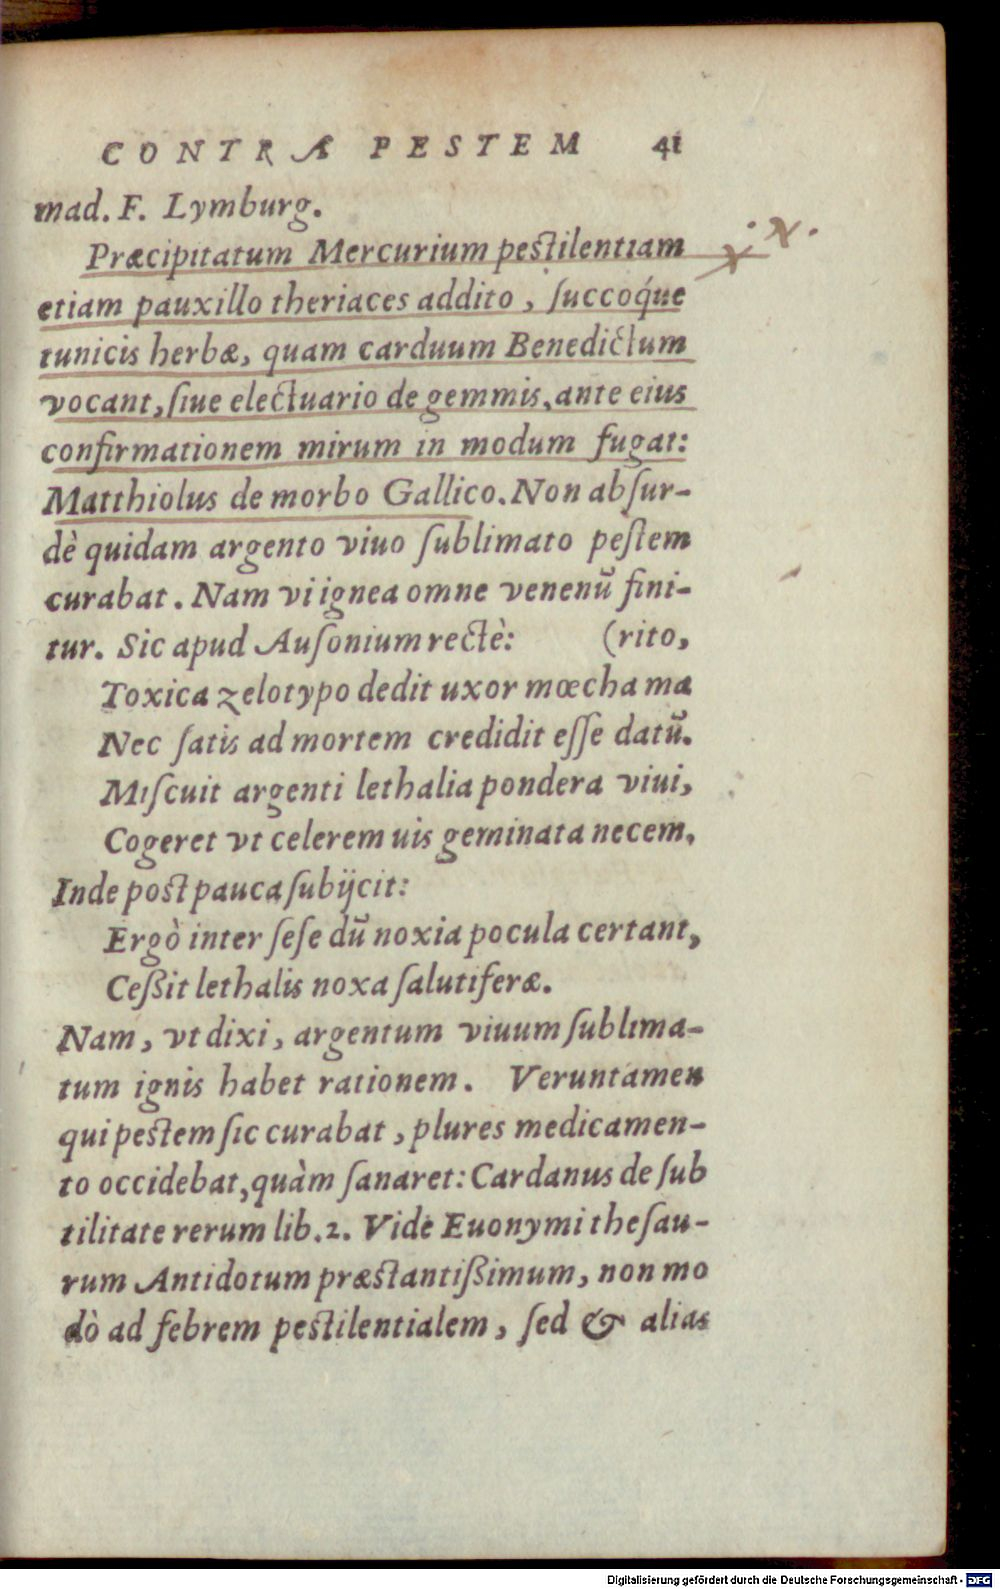 CONTRA PESTEM 41
mad. F. Lymburg.
Præcipitatum Mercurium pestilentiam
etiam pauxillo theriaces addito, ſuccoq́ue
tunicis herbæ, quam carduum Benedictum
vocant, ſiue electuario de gemmis, ante eius
confirmationem mirum in modum fugat:
Matthiolus de morbo Gallico. Non abſur-
dè quidam argento viuo ſublimato peſtem
curabat. Nam vi ignea omne venenū fini-
tur. Sic apud Auſonium rectè: (rito,
Toxica zelotypo dedit uxor mœcha ma
Nec ſatis ad mortem credidit eſſe datū.
Miſcuit argenti lethalia pondera viui,
Cogeret vt celerem uis geminata necem.
Inde poſt pauca ſubijcit:
Ergò inter ſeſe dū noxia pocula certant,
Ceßit lethalis noxa ſalutiferæ.
Nam, vt dixi, argentum viuum ſublima-
tum ignis habet rationem. Veruntamen
qui peſtem ſic curabat, plures medicamen-
to occidebat, quàm ſanaret: Cardanus de ſub
tilitate rerum lib. 2. Vide Euonymi theſau-
rum Antidotum præſtantißimum, non mo
dò ad febrem peſtilentialem, ſed & alias
Digitalisierung gefördert durch die Deutsche Forschungsgemeinschaft - DFG